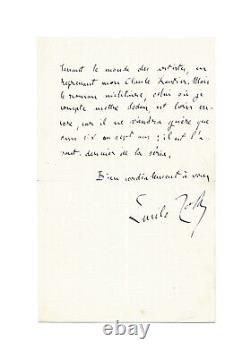 tenant le monde des artistes, en
reprenant mon Claude Lantier. Mais
le roman militaire, celui où je
compte mettre dedans, est loin en-
core, car il ne viendra guère que
dans six ou sept ans ; il est l'a-
vant-dernier de la série.
Bien cordialement à vous
Emile Zola
ebay.com